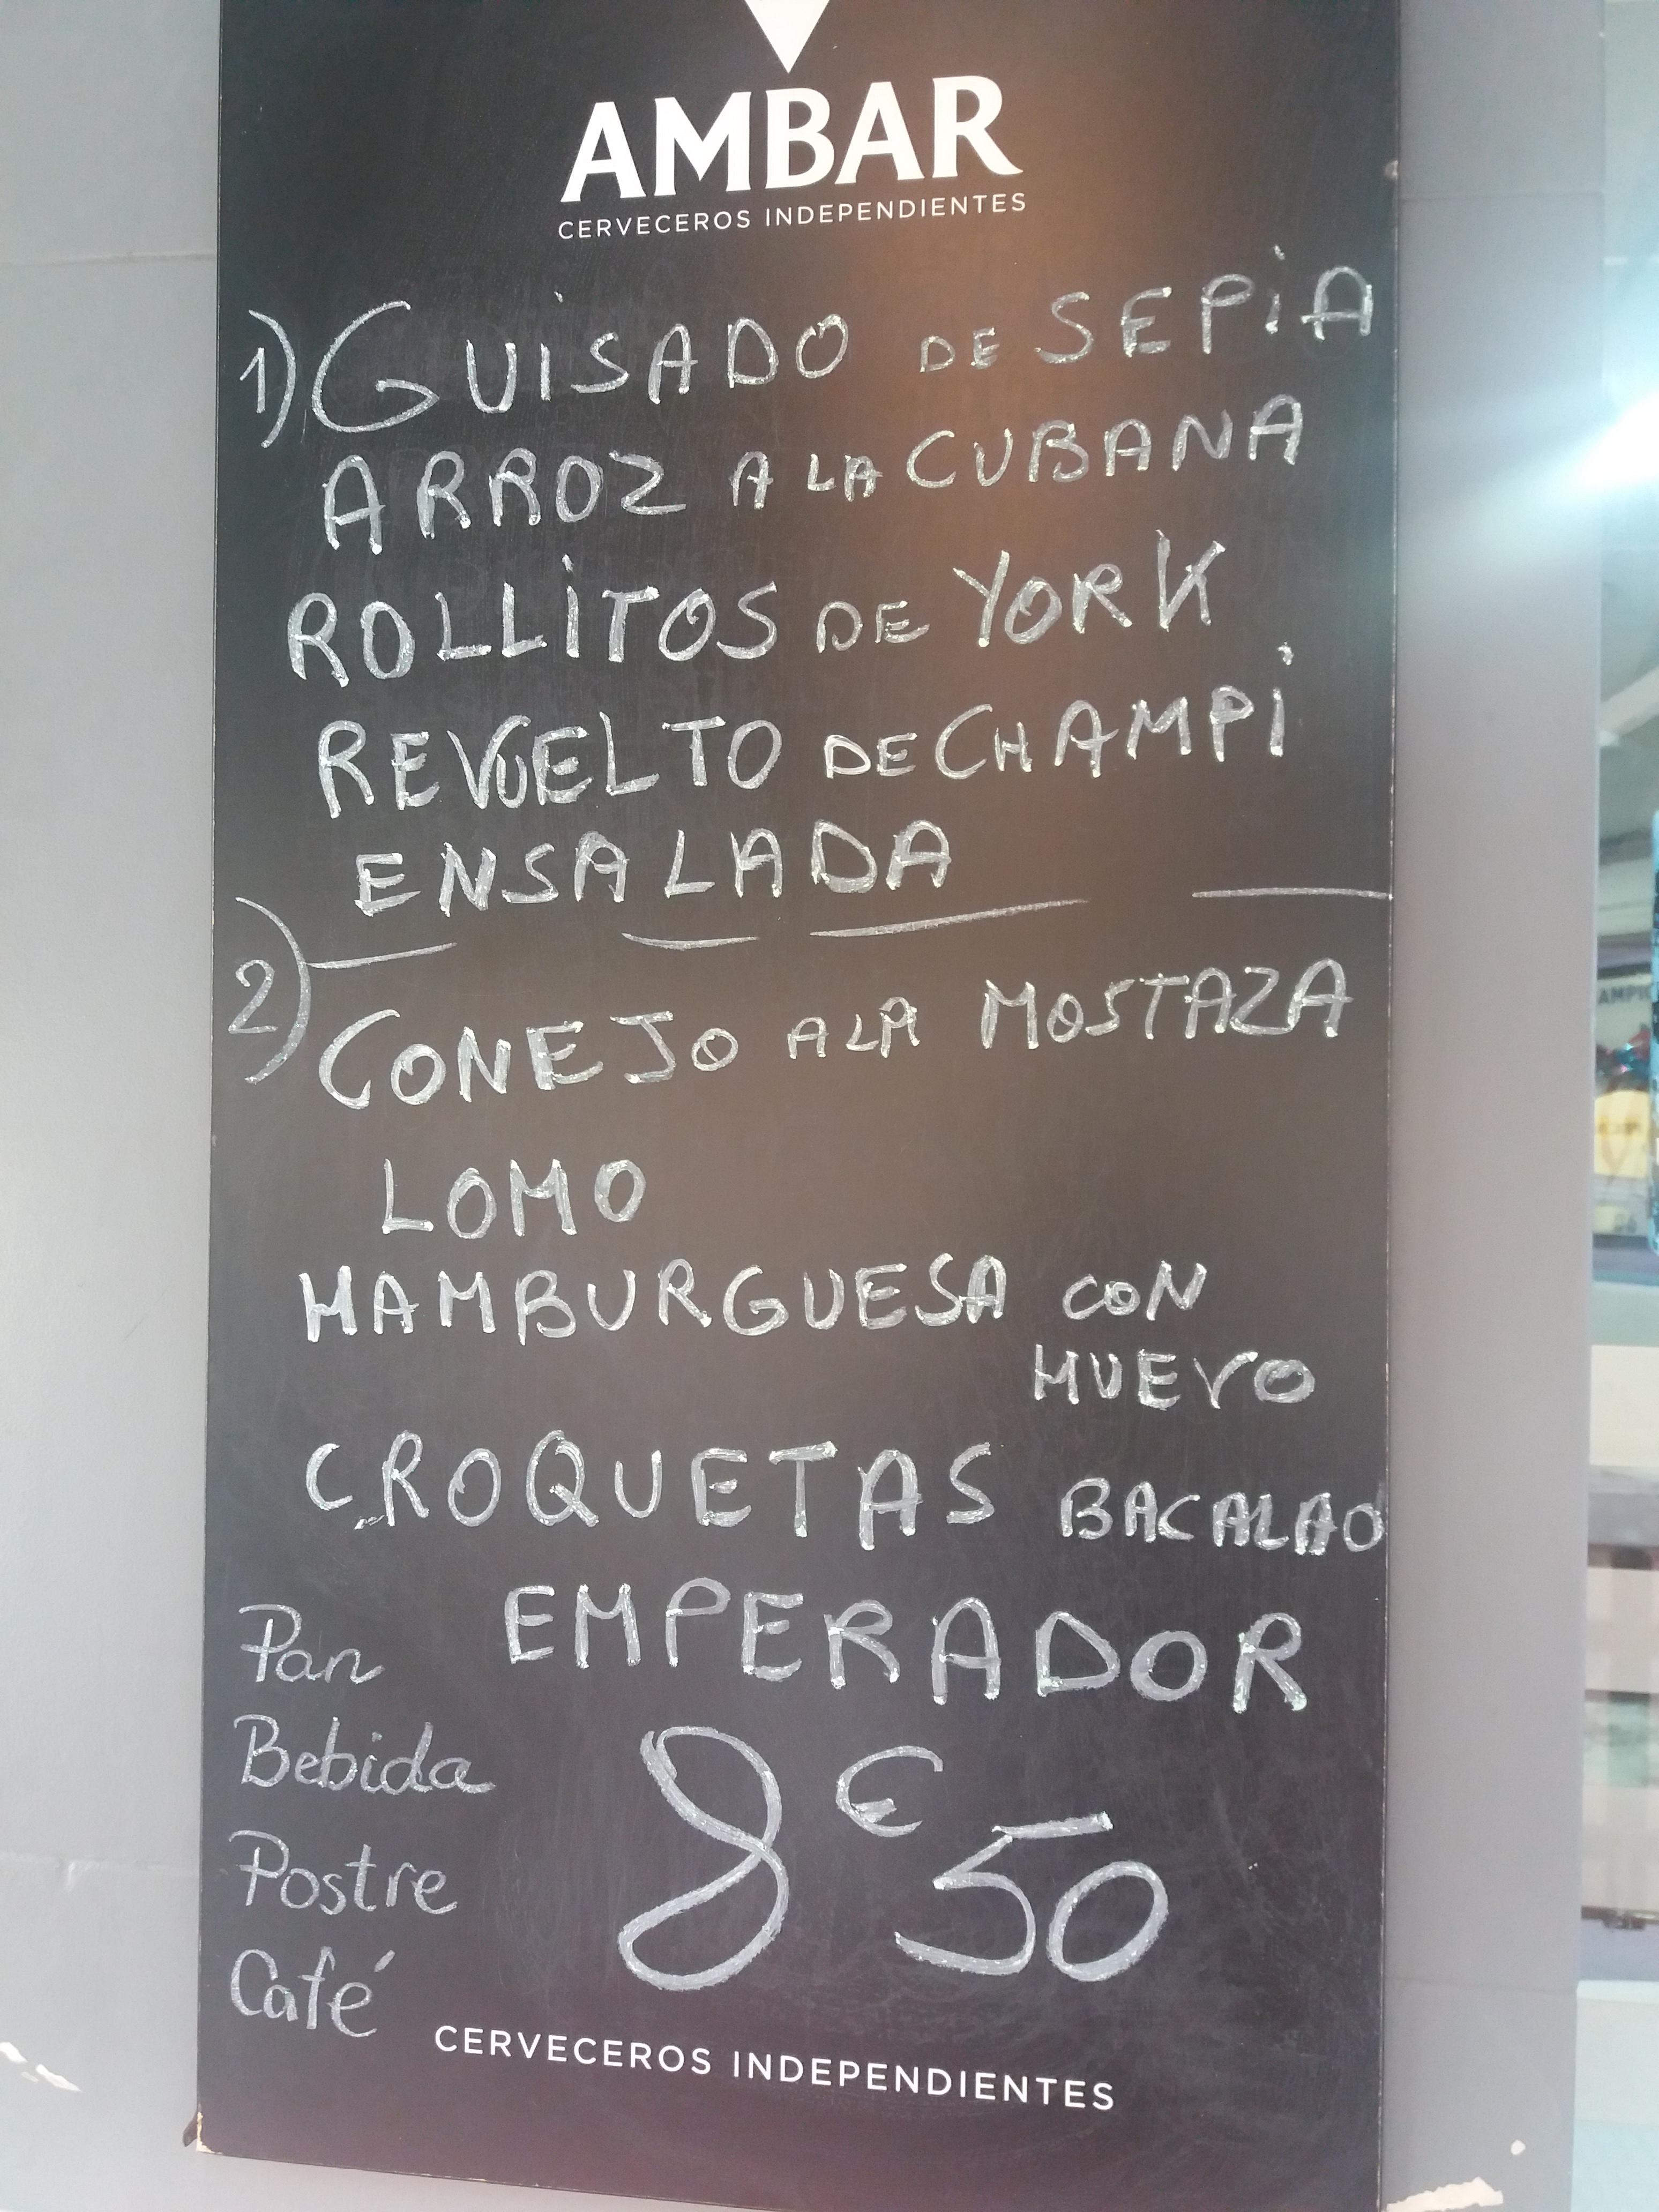 AMBAR
CERVECEROS INDEPENDIENTES
1) GUISADO DE SEPIA
ARROZ A LA CUBANA
ROLLITOS DE YORK
REVUELTO DE CHAMPI
ENSALADA
2) CONEJO A LA MOSTAZA
LOMO
HAMBURGUESA CON
HUEVO
CROQUETAS BACALAO
EMPERADOR
Pan
Bebida
Postre
Café
8€50
CERVECEROS INDEPENDIENTES